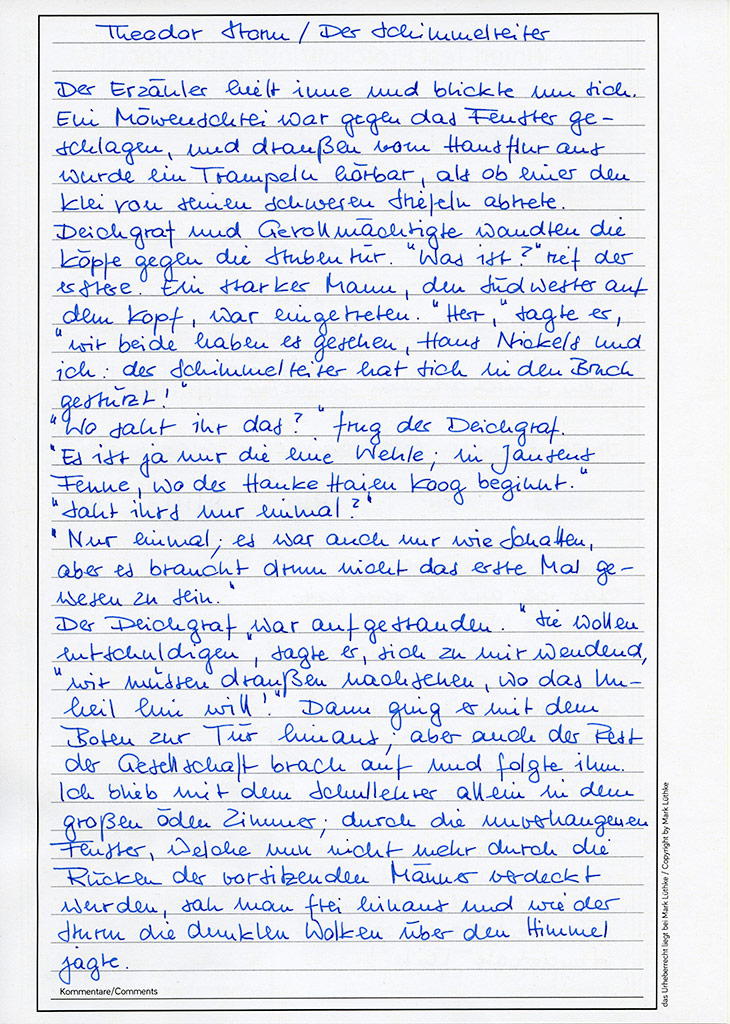 Theodor Storm / Der Schimmelreiter
Der Erzähler hielt inne und blickte um sich.
Ein Möwenschrei war gegen das Fenster ge-
schlagen, und draußen vom Hausflur aus
wurde ein Trampeln hörbar, als ob einer den
Klei von seinen schweren Stiefeln abtrete.
Deichgraf und Gevollmächtigte wandten die
Köpfe gegen die Stubentür. "Was ist?" rief der
erstere. Ein starker Mann, den Südwester auf
dem Kopf, war eingetreten. "Herr," sagte er,
"wir beide haben es gesehen, Hans Nickels und
ich: der Schimmelreiter hat sich in den Bruch
gestürzt!"
"Wo saht ihr das?" frug der Deichgraf.
"Es ist ja nur die eine Wehle; in Jansens
Fenne, wo der Hauke Haien Koog beginnt."
"Saht ihrs nur einmal?"
"Nur einmal; es war auch nur wie Schatten,
aber es braucht drum nicht das erste Mal ge-
wesen zu sein."
Der Deichgraf war aufgestanden. "Sie wollen
entschuldigen", sagte er, sich zu mir wendend,
"wir müssen draußen nachsehen, wo das Un-
heil hin will!" Dann ging er mit dem
Boten zur Tür hinaus; aber auch der Rest
der Gesellschaft brach auf und folgte ihm.
Ich blieb mit dem Schullehrer allein in dem
großen öden Zimmer; durch die unverhangenen
Fenster, welche nun nicht mehr durch die
Rücken der vorsitzenden Männer verdeckt
wurden, sah man frei hinaus und wie der
Sturm die dunklen Wolken über den Himmel
jagte.
Kommentare/Comments
das Urheberrecht liegt bei Mark Lüthke / Copyright by Mark Lüthke